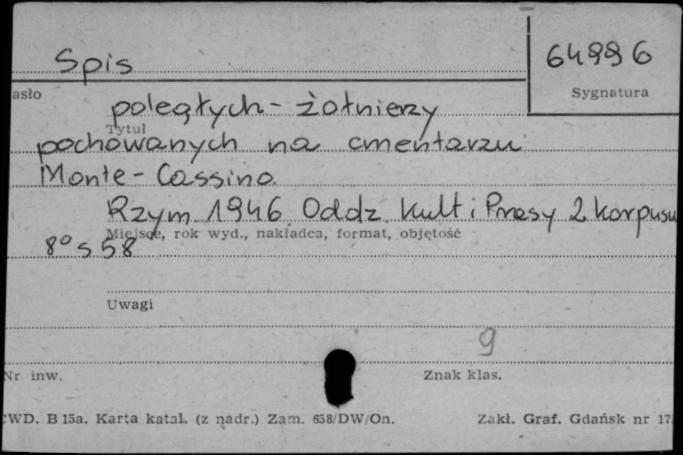 Spis
64996
asło
Sygnatura
poległych - żołnierzy
Tytuł
pochowanych na cmentarzu
Monte-Cassino.
Rzym 1946. Oddz. Kult i Prasy 2 Korpusu
Miejsce, rok wyd., nakładca, format, objętość
8° s 58
Uwagi
9
Nr inw.
Znak klas.
WD. B 15a. Karta katal. (z nadr.) Zam. 658/DW/On.
Zakł. Graf. Gdańsk nr 17